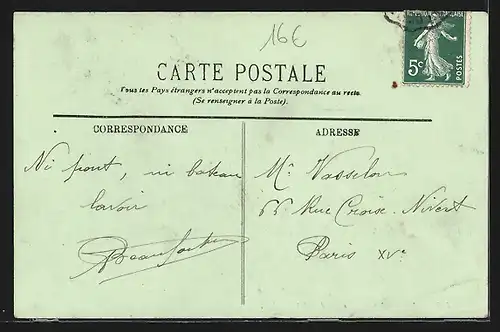 16€
5c POSTES
CARTE POSTALE
Tous les Pays étrangers n'acceptent pas la Correspondance au recto.
(Se renseigner à la Poste).
CORRESPONDANCE
Ni pont, ni bateau
lavoir
ADRESSE
Mr Vasselon
66 Rue Croix-Nivert
Paris XVe